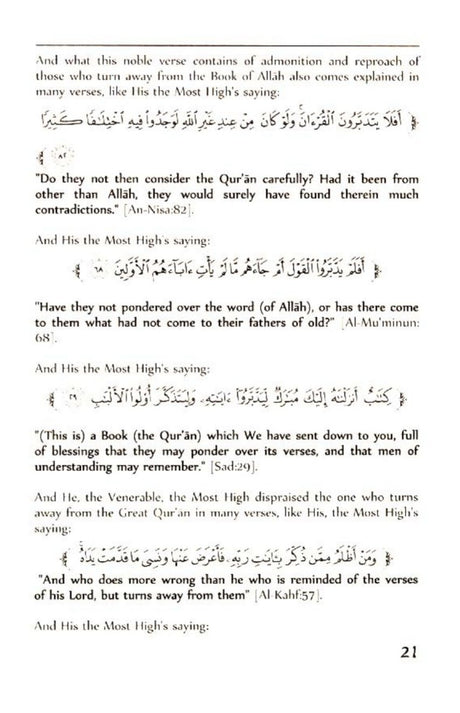 And what this noble verse contains of admonition and reproach of
those who turn away from the Book of Allāh also comes explained in
many verses, like His the Most High's saying:
﴿ أَفَلَا يَتَدَبَّرُونَ ٱلْقُرْءَانَ ۚ وَلَوْ كَانَ مِنْ عِندِ غَيْرِ ٱللَّهِ لَوَجَدُوا۟ فِيهِ ٱخْتِلَـٰفًا كَثِيرًا
٨٢ ﴾
"Do they not then consider the Qur'ān carefully? Had it been from
other than Allāh, they would surely have found therein much
contradictions." [An-Nisa:82].
And His the Most High's saying:
﴿ أَفَلَمْ يَدَّبَّرُوا۟ ٱلْقَوْلَ أَمْ جَآءَهُم مَّا لَمْ يَأْتِ ءَابَآءَهُمُ ٱلْأَوَّلِينَ ٦٨ ﴾
"Have they not pondered over the word (of Allāh), or has there come
to them what had not come to their fathers of old?" [Al-Mu'minun:
68].
And His the Most High's saying:
﴿ كِتَـٰبٌ أَنزَلْنَـٰهُ إِلَيْكَ مُبَـٰرَكٌ لِّيَدَّبَّرُوٓا۟ ءَايَـٰتِهِۦ وَلِيَتَذَكَّرَ أُو۟لُوا۟ ٱلْأَلْبَـٰبِ ٢٩ ﴾
"(This is) a Book (the Qur'ān) which We have sent down to you, full
of blessings that they may ponder over its verses, and that men of
understanding may remember." [Sad:29].
And He, the Venerable, the Most High dispraised the one who turns
away from the Great Qur'an in many verses, like His, the Most High's
saying:
﴿ وَمَنْ أَظْلَمُ مِمَّن ذُكِّرَ بِـَٔايَـٰتِ رَبِّهِۦ فَأَعْرَضَ عَنْهَا وَنَسِىَ مَا قَدَّمَتْ يَدَاهُ ۚ ﴾
"And who does more wrong than he who is reminded of the verses
of his Lord, but turns away from them" [Al-Kahf:57].
And His the Most High's saying:
21